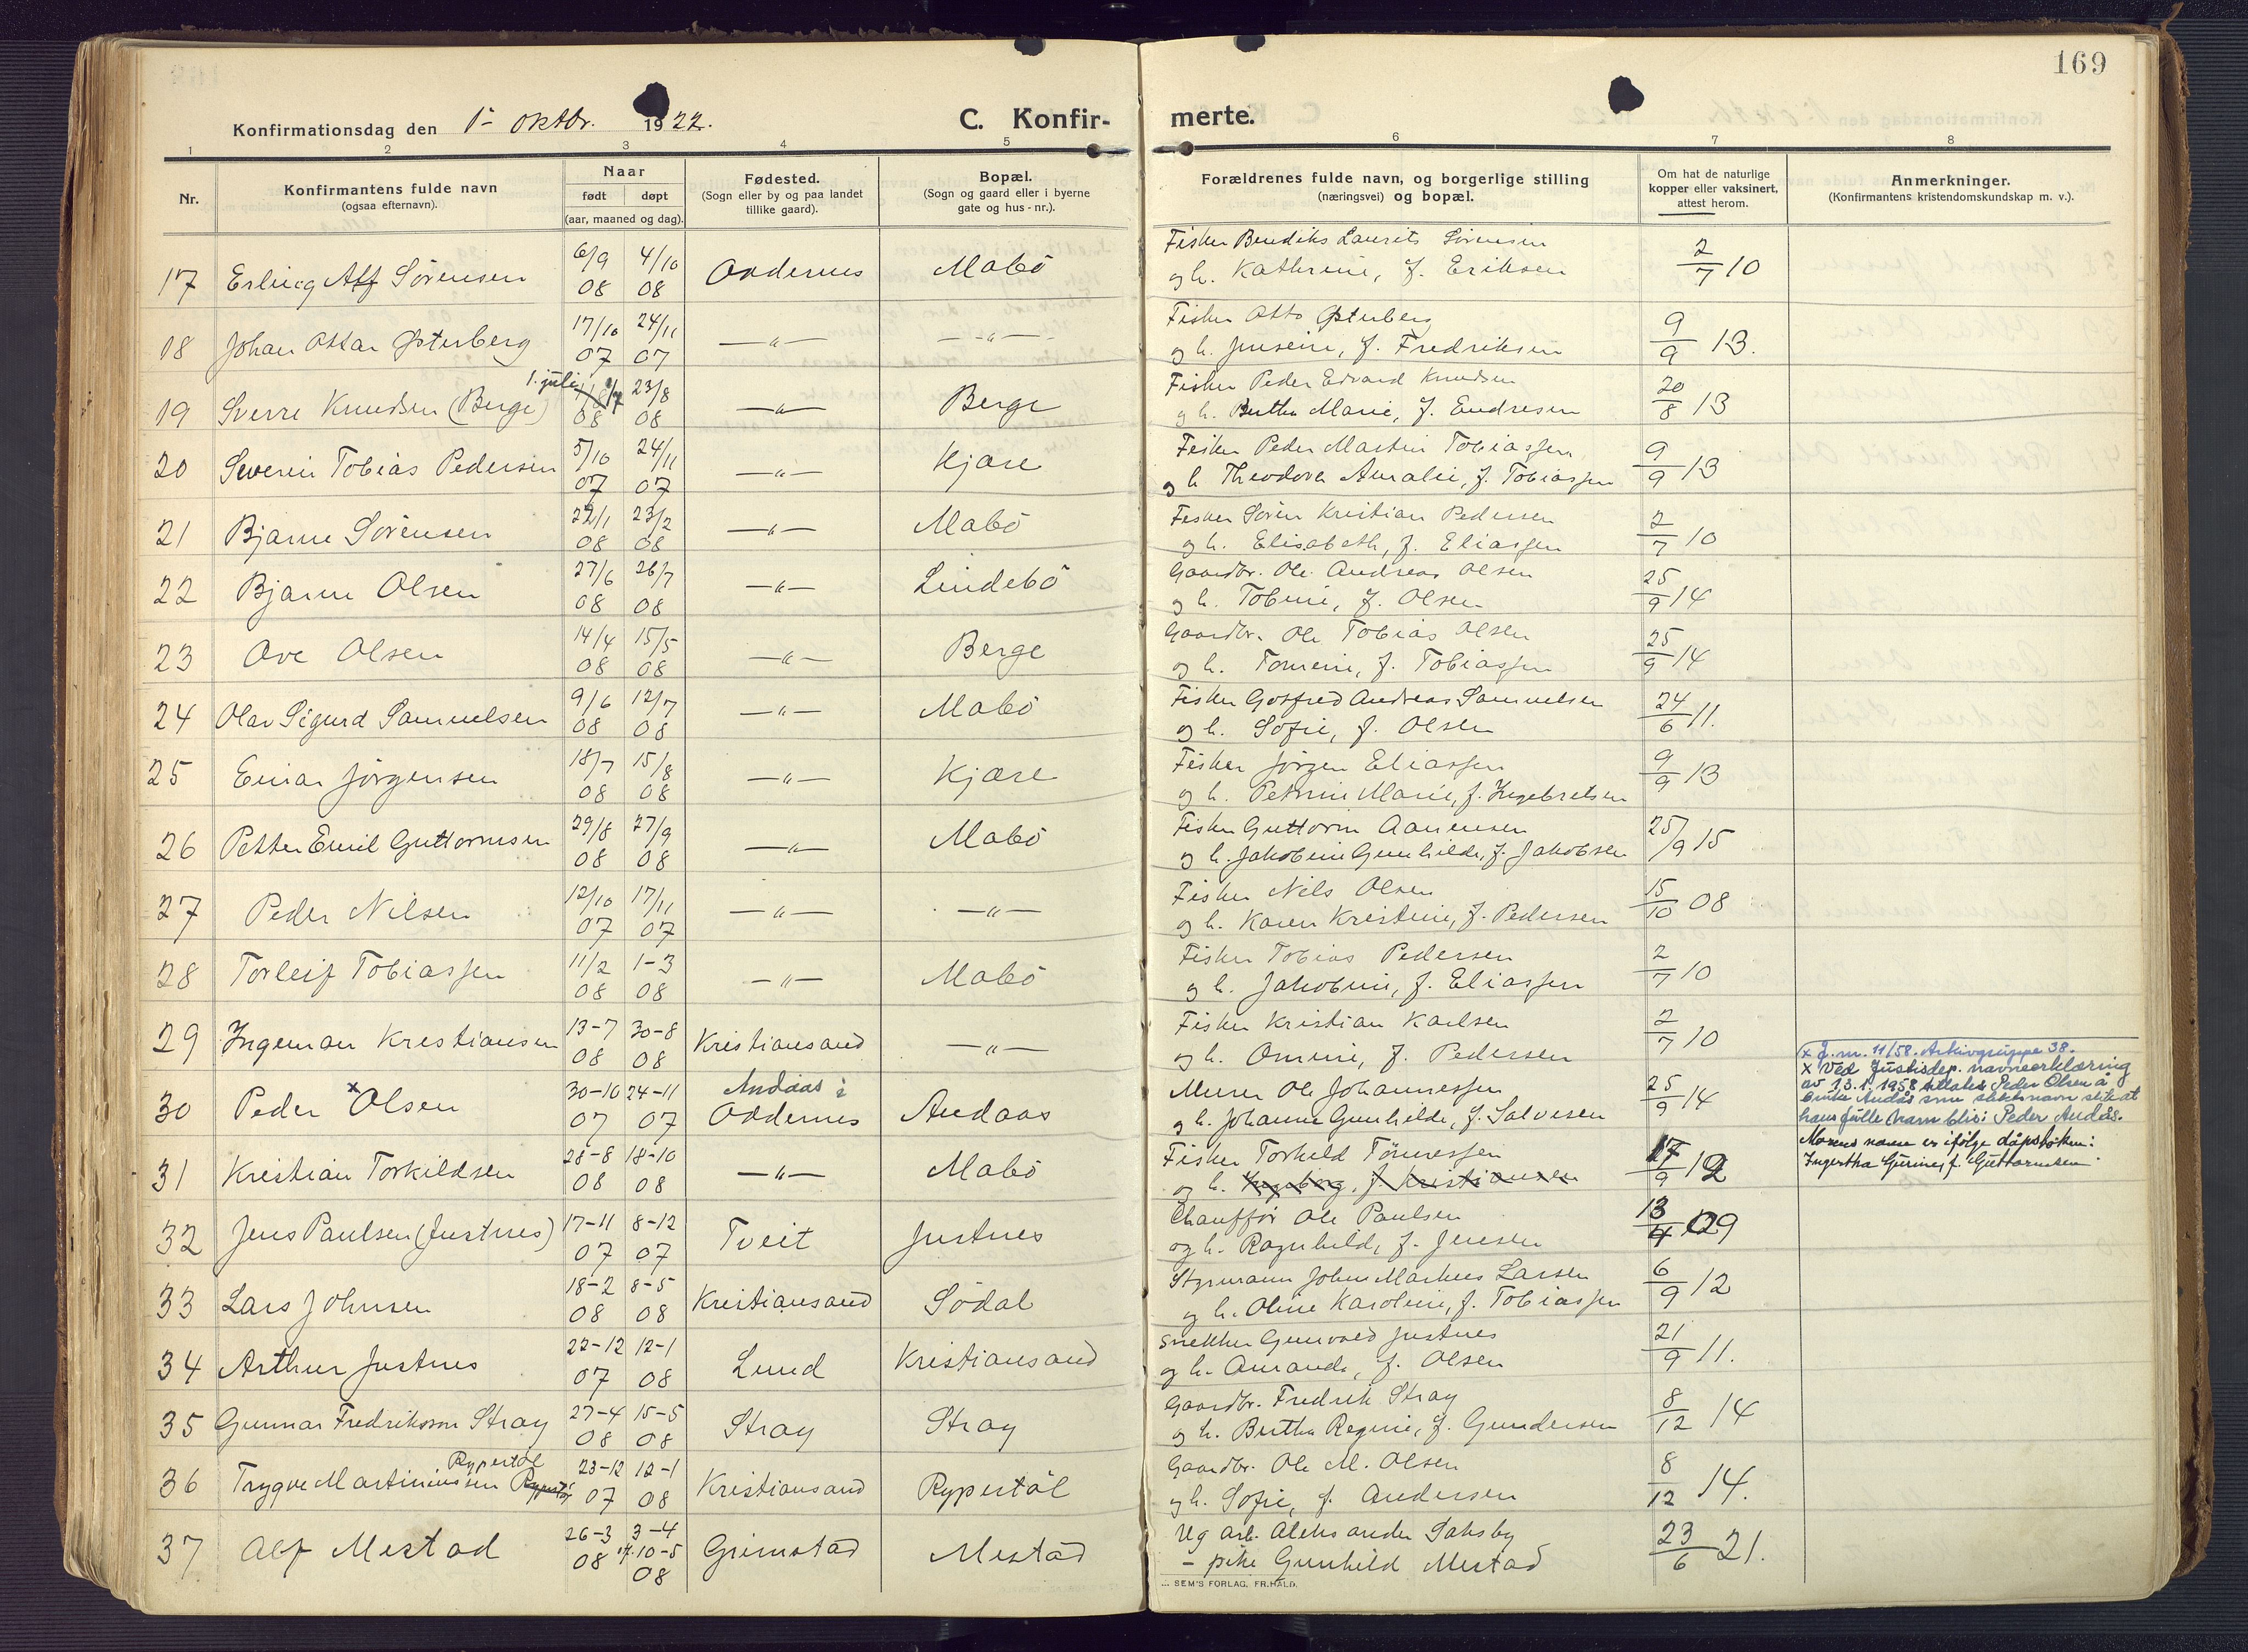 169
Konfirmationsdag den 1ste oktbr. 1922. C. Konfir-
merte.
1 2 3 4 5 6 7 8
Nr.
Konfirmantens fulde navn
(ogsaa efternavn).
Naar
født døpt
(aar, maaned og dag).
Fødested.
(Sogn eller by og paa landet
tillike gaard).
Bopæl.
(Sogn og gaard eller i byerne
gate og hus-nr.).
Forældrenes fulde navn, og borgerlige stilling
(næringsvei) og bopæl.
Om hat de naturlige
kopper eller vaksinert,
attest herom.
Anmerkninger.
(Konfirmantens kristendomskundskap m. v.).
17 Erling Alf Sörensen 6/9 08 4/10 08 Oddernes Mabö
Fisker Bendiks Laurits Sörensen
og h. Kathrine, f. Eriksen 2/7 10
18 Johan Ottar Østerberg 17/10 07 24/11 07 —"— —"—
Fisker Otto Østerberg
og h. Jensine, f. Fredriksen 9/9 13.
19 Sverre Knudsen (Berge) 1. juli 1/7 08 23/8 08 —"— Berge
Fisker Peder Edvard Knudsen
og h. Berthe Marie, f. Endresen 20/8 13
20 Severin Tobias Pedersen 5/10 07 24/11 07 —"— Kjære
Fisker Peder Martin Tobiassen
og h. Theodora Amalie, f. Tobiassen 9/9 13
21 Bjarne Sörensen 22/1 08 23/2 08 —"— Mabö
Fisker Sören Kristian Pedersen
og h. Elisabeth, f. Eliassen 2/7 10
22 Bjarne Olsen 27/6 08 26/7 08 —"— Lindebö
Gaardbr. Ole Andreas Olsen
og h. Tobine, f. Olsen 25/9 14
23 Ove Olsen 14/4 08 15/5 08 —"— Berge
Gaardbr. Ole Tobias Olsen
og h. Tomine, f. Tobiassen 25/9 14
24 Olav Sigurd Samuelsen 9/6 08 12/7 08 —"— Mabö
Fisker Gotfred Andreas Samuelsen
og h. Sofie, f. Olsen 24/6 11.
25 Einar Jörgensen 18/7 08 15/8 08 —"— Kjære
Fisker Jörgen Eliassen
og h. Petrine Marie, f. Ingebretsen 9/9 13
26 Petter Emil Guttormsen 29/8 08 27/9 08 —"— Mabö
Fisker Guttorm Aanensen
og h. Jakobine Gunhilde, f. Jakobsen 25/9 15
27 Peder Nilsen 12/10 07 17/11 07 —"— —"—
Fisker Nils Olsen
og h. Karen Kristine, f. Pedersen 15/10 08
28 Torleif Tobiassen 11/2 08 1-3 08 —"— Mabö
Fisker Tobias Pedersen
og h. Jakobine, f. Eliassen 2/7 10
29 Ingeman Kristiansen 13-7 08 30-8 08 Kristiansand —"—
Fisker Kristian Karlsen
og h. Omine, f. Pedersen 2/7 10
30 Peder ×Olsen 30-10 07 24-11 07 Andaas i Oddernes Andaas
Murer Ole Johannessen
og h. Johanne Gunhilde, f. Salvesen 25/9 14
× J.nr. 11/58. Arkivgruppe 38.
× Ved Justisdep. navneerklæring
av 13.1.1958 tillates Peder Olsen å
bruke Andås som slektsnavn slik at
hans fulle navn blir: Peder Andås.
31 Kristian Torkildsen 28-8 08 18-10 08 —"— Mabö
Fisker Torkeld Tönnessen
og h. Ingeborg, f. Kristiansen 17/9 12
Morens navn er ifølge dåpsboken:
Ingertha Gurine, f. Guttormsen
32 Jens Paulsen (Justnes) 17-11 07 8-12 07 Tveit Justnes
Chaufför Ole Paulsen
og h. Ragnhild, f. Jensen 13/4 09
33 Lars Johnsen 18-2 08 8-5 08 Kristiansand Södal
Styrmann John Markus Larsen
og h. Oline Karoline, f. Tobiassen 6/9 12
34 Arthur Justnes 22-12 07 12-1 08 Lund Kristiansand
Snekker Gunvald Justnes
og h. Amanda, f. Olsen 21/9 11.
35 Gunnar Fredriksson Stray 27-4 08 15-5 08 Stray Stray
Gaardbr. Fredrik Stray
og h. Berthe Regine, f. Gundersen 8/12 14
36 Trygve Martiniussen Rypestöl 23-12 07 12-1 08 Kristiansand Rypestöl
Gaardbr. Ole M. Olsen
og h. Sofie, f. Andersen 8/12 14.
37 Alf Mestad 26-3 08 3-4 10-5 08 Grimstad Mestad
Ug arb. Aleksander Saksby
- pike Gunhild Mestad 23/6 21.
SEM'S FORLAG, FR.HALD.